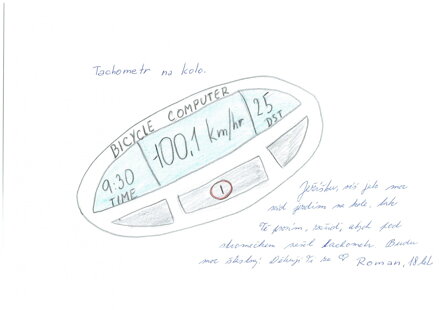 Tachometr na kolo.
BICYCLE COMPUTER
9:30
TIME
100,1 km/hr
25
DST
1
Ježíšku, víš jak moc
rád jezdím na kole, tak
Tě prosím, abych pod
stromečkem našel tachometr. Budu
moc šťastný! Děkuji Ti za ♡ Roman, 18 let